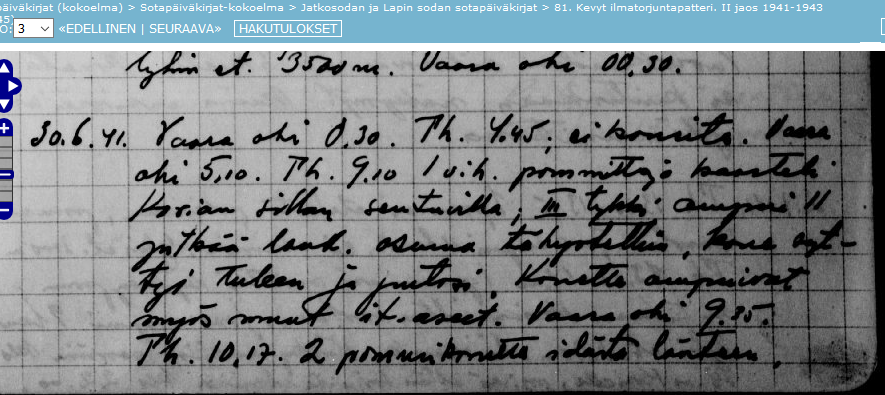 päiväkirjat (kokoelma) > Sotapäiväkirjat-kokoelma > Jatkosodan ja Lapin sodan sotapäiväkirjat > 81. Kevyt ilmatorjuntapatteri. II jaos 1941-1943
45)
O: 3 «EDELLINEN | SEURAAVA» HAKUTULOKSET
lyhin et. 3500 m. Vaara ohi 00.30.
30.6.41. Vaara ohi 0.30. Th. 4.45, ei koneita. Vaara
ohi 5.10. Th. 9.10 1 vih. pommittaja
Korian sillan seutuvilla, III tykki ampui 11
lauk. osuma kone syt-
tyi tuleen ja putosi. Konetta ampuivat
myös muut it.aseet. Vaara ohi 9.35.
Th. 10.17. 2 pommikonetta idästä länteen.